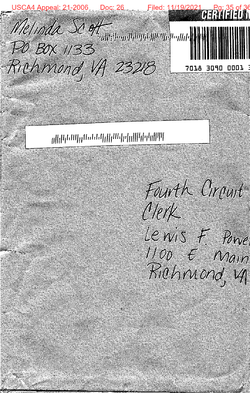 USCA4 Appeal: 21-2006 Doc: 26 Filed: 11/19/2021 Pg: 35 of 36
Melinda Scott
PO BOX 1133
Richmond, VA 23218
CERTIFIED
7018 3090 0001
Fourth Circuit
Clerk
Lewis F
1100 E Main
Richmond, VA